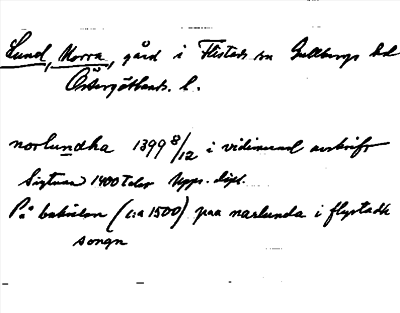 Lund, Norra, gård i Flistads sn Gullbergs hd
Östergötlands l.
norlundha 1399 8/12 i vidimerad avskrift
Sigtuna 1400talet Upps. dipl.
På baksidan (c:a 1500) paa narlunda i flystadh
songn